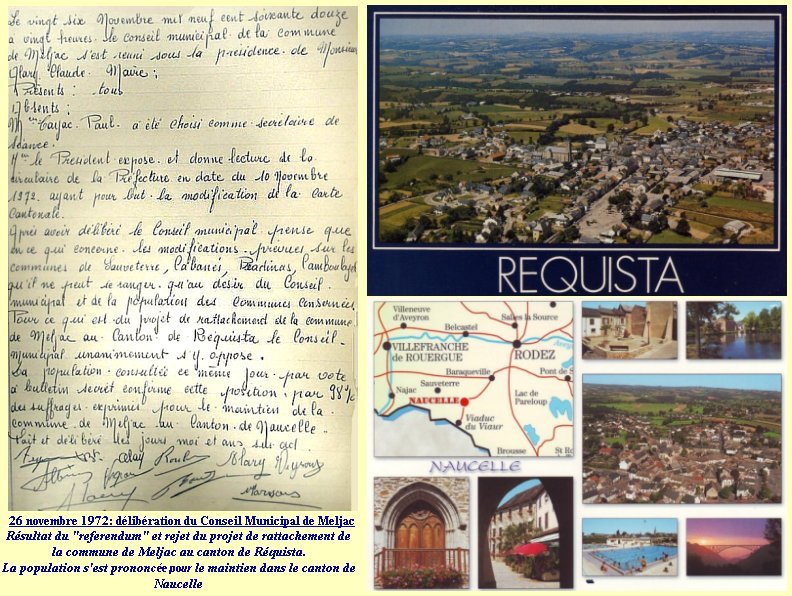 Le vingt six Novembre mil neuf cent soixante douze
a vingt heures. le conseil municipal de la commune
de Meljac s'est reuni sous la présidence de Monsieur
Mary Claude. Maire;
Présents : tous
Absents :
Mr Cayzac Paul. a été choisi comme secrétaire de
séance.
Mr le President expose et donne lecture de la
circulaire de la Préfecture en date du 10 Novembre
1972. ayant pour but la modification de la carte
Cantonale.
Après avoir délibéré le Conseil municipal pense que
en ce qui concerne les modifications prévues sur les
communes de Sauveterre, Cabanès, Camboulazet
qu'il ne peut se ranger qu'au désir du Conseil
municipal et de la population des Communes consernées
Pour ce qui est du projet de rattachement de la commune
de Meljac au Canton de Réquista le Conseil-
municipal unanimement s'y oppose.
La population consultée ce même jour par vote
a bulletin secret confirme cette position, par 98 %
des suffrages exprimés pour le maintien de la
commune de Meljac au Canton de Naucelle.
Fait et délibéré les jours moi et ans
Mary
26 novembre 1972: délibération du Conseil Municipal de Meljac
Résultat du "referendum" et rejet du projet de rattachement de
la commune de Meljac au canton de Réquista.
La population s'est prononcée pour le maintien dans le canton de
Naucelle
REQUISTA
Villeneuve
d'Aveyron
Salles la Source
Belcastel
VILLEFRANCHE
de ROUERGUE
RODEZ
Baraqueville
Pont de S
Sauveterre
Najac
NAUCELLE
Lac de
Pareloup
Viaduc
du Viaur
Brousse
St R
NAUCELLE